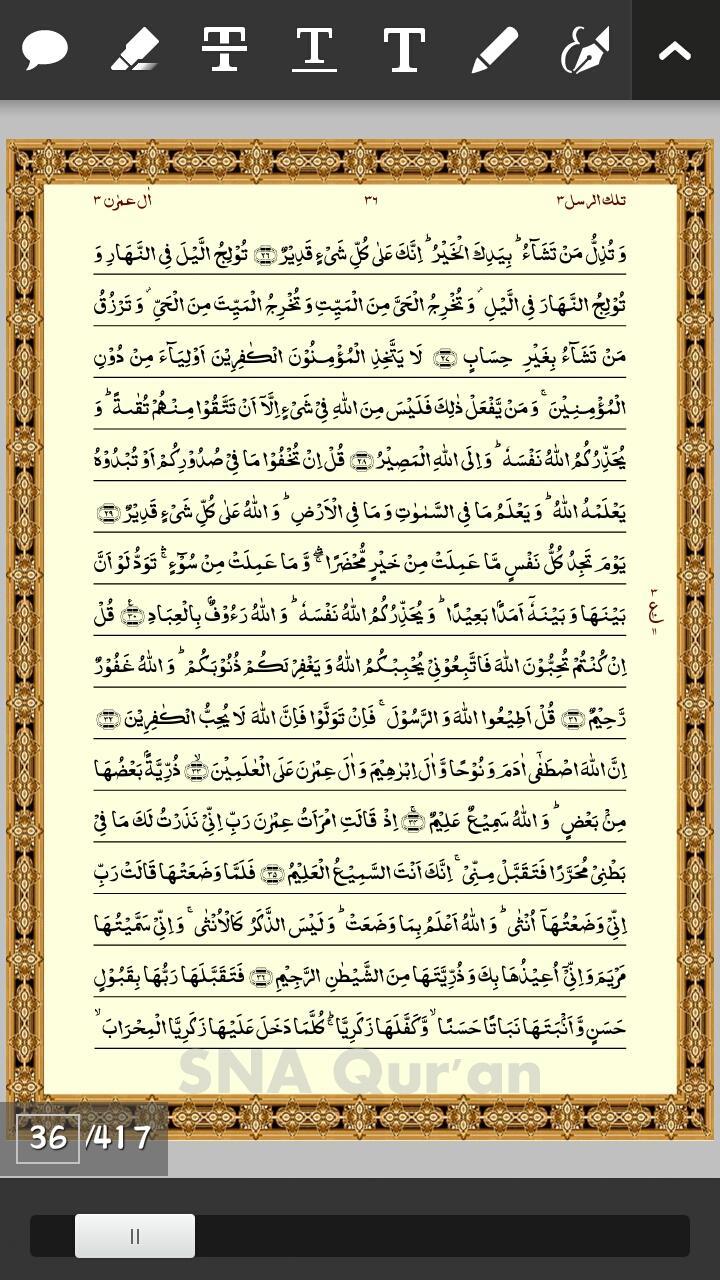 تلك الرسل ٣ ٣٦ اٰل عمرٰن ٣
وَ تُذِلُّ مَنْ تَشَآءُ ؕ بِيَدِكَ الْخَيْرُ ؕ اِنَّكَ عَلٰى كُلِّ شَىْءٍ قَدِيْرٌ ﴿۲۶﴾ تُوْلِجُ الَّيْلَ فِى النَّهَارِ وَ
تُوْلِجُ النَّهَارَ فِى الَّيْلِ ۫ وَ تُخْرِجُ الْحَىَّ مِنَ الْمَيِّتِ وَ تُخْرِجُ الْمَيِّتَ مِنَ الْحَىِّ ۫ وَ تَرْزُقُ
مَنْ تَشَآءُ بِغَيْرِ حِسَابٍ ﴿۲۷﴾ لَا يَتَّخِذِ الْمُؤْمِنُوْنَ الْكٰفِرِيْنَ اَوْلِيَآءَ مِنْ دُوْنِ
الْمُؤْمِنِيْنَ ۚ وَ مَنْ يَّفْعَلْ ذٰلِكَ فَلَيْسَ مِنَ اللّٰهِ فِىْ شَىْءٍ اِلَّاۤ اَنْ تَتَّقُوْا مِنْهُمْ تُقٰىةً ؕ وَ
يُحَذِّرُكُمُ اللّٰهُ نَفْسَهٗ ؕ وَ اِلَى اللّٰهِ الْمَصِيْرُ ﴿۲۸﴾ قُلْ اِنْ تُخْفُوْا مَا فِىْ صُدُوْرِكُمْ اَوْ تُبْدُوْهُ
يَعْلَمْهُ اللّٰهُ ؕ وَ يَعْلَمُ مَا فِى السَّمٰوٰتِ وَ مَا فِى الْاَرْضِ ؕ وَ اللّٰهُ عَلٰى كُلِّ شَىْءٍ قَدِيْرٌ ﴿۲۹﴾
يَوْمَ تَجِدُ كُلُّ نَفْسٍ مَّا عَمِلَتْ مِنْ خَيْرٍ مُّحْضَرًا ۛۖۚ وَّ مَا عَمِلَتْ مِنْ سُوْٓءٍ ۛۚ تَوَدُّ لَوْ اَنَّ
بَيْنَهَا وَ بَيْنَهٗۤ اَمَدًۢا بَعِيْدًا ؕ وَ يُحَذِّرُكُمُ اللّٰهُ نَفْسَهٗ ؕ وَ اللّٰهُ رَءُوْفٌۢ بِالْعِبَادِ ﴿۳۰﴾ قُلْ
اِنْ كُنْتُمْ تُحِبُّوْنَ اللّٰهَ فَاتَّبِعُوْنِىْ يُحْبِبْكُمُ اللّٰهُ وَ يَغْفِرْ لَكُمْ ذُنُوْبَكُمْ ؕ وَ اللّٰهُ غَفُوْرٌ
رَّحِيْمٌ ﴿۳۱﴾ قُلْ اَطِيْعُوا اللّٰهَ وَ الرَّسُوْلَ ۚ فَاِنْ تَوَلَّوْا فَاِنَّ اللّٰهَ لَا يُحِبُّ الْكٰفِرِيْنَ ﴿۳۲﴾
اِنَّ اللّٰهَ اصْطَفٰٓى اٰدَمَ وَ نُوْحًا وَّ اٰلَ اِبْرٰهِيْمَ وَ اٰلَ عِمْرٰنَ عَلَى الْعٰلَمِيْنَ ﴿۳۳﴾ ذُرِّيَّةًۢ بَعْضُهَا
مِنْۢ بَعْضٍ ؕ وَ اللّٰهُ سَمِيْعٌ عَلِيْمٌ ﴿۳۴﴾ اِذْ قَالَتِ امْرَاَتُ عِمْرٰنَ رَبِّ اِنِّىْ نَذَرْتُ لَكَ مَا فِىْ
بَطْنِىْ مُحَرَّرًا فَتَقَبَّلْ مِنِّىْ ۚ اِنَّكَ اَنْتَ السَّمِيْعُ الْعَلِيْمُ ﴿۳۵﴾ فَلَمَّا وَضَعَتْهَا قَالَتْ رَبِّ
اِنِّىْ وَضَعْتُهَاۤ اُنْثٰى ؕ وَ اللّٰهُ اَعْلَمُ بِمَا وَضَعَتْ ؕ وَ لَيْسَ الذَّكَرُ كَالْاُنْثٰى ۚ وَ اِنِّىْ سَمَّيْتُهَا
مَرْيَمَ وَ اِنِّىْۤ اُعِيْذُهَا بِكَ وَ ذُرِّيَّتَهَا مِنَ الشَّيْطٰنِ الرَّجِيْمِ ﴿۳۶﴾ فَتَقَبَّلَهَا رَبُّهَا بِقَبُوْلٍ
حَسَنٍ وَّ اَنْۢبَتَهَا نَبَاتًا حَسَنًا ۙ وَّ كَفَّلَهَا زَكَرِيَّا ؕۚ كُلَّمَا دَخَلَ عَلَيْهَا زَكَرِيَّا الْمِحْرَابَ ۙ
٣
ع
١١
SNA Qur'an
36 /417